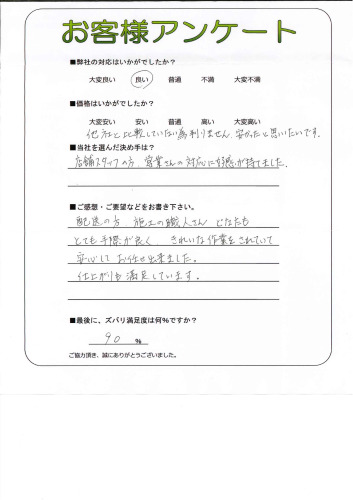 お客様アンケート
■弊社の対応はいかがでしたか？
大変良い 良い 普通 不満 大変不満
■価格はいかがでしたか？
大変安い 安い 普通 高い 大変高い
他社と比較していない為判りません。安かったと思いたいです。
■当社を選んだ決め手は？
店舗スタッフの方、営業さんの対応に好感が持てました。
■ご感想・ご要望などをお書き下さい。
配送の方 施工の職人さん どなたも
とても手際が良く、きれいな作業をされていて
安心してお任せ出来ました。
仕上がりも満足しています。
■最後に、ズバリ満足度は何%ですか？
90 %
ご協力頂き、誠にありがとうございました。